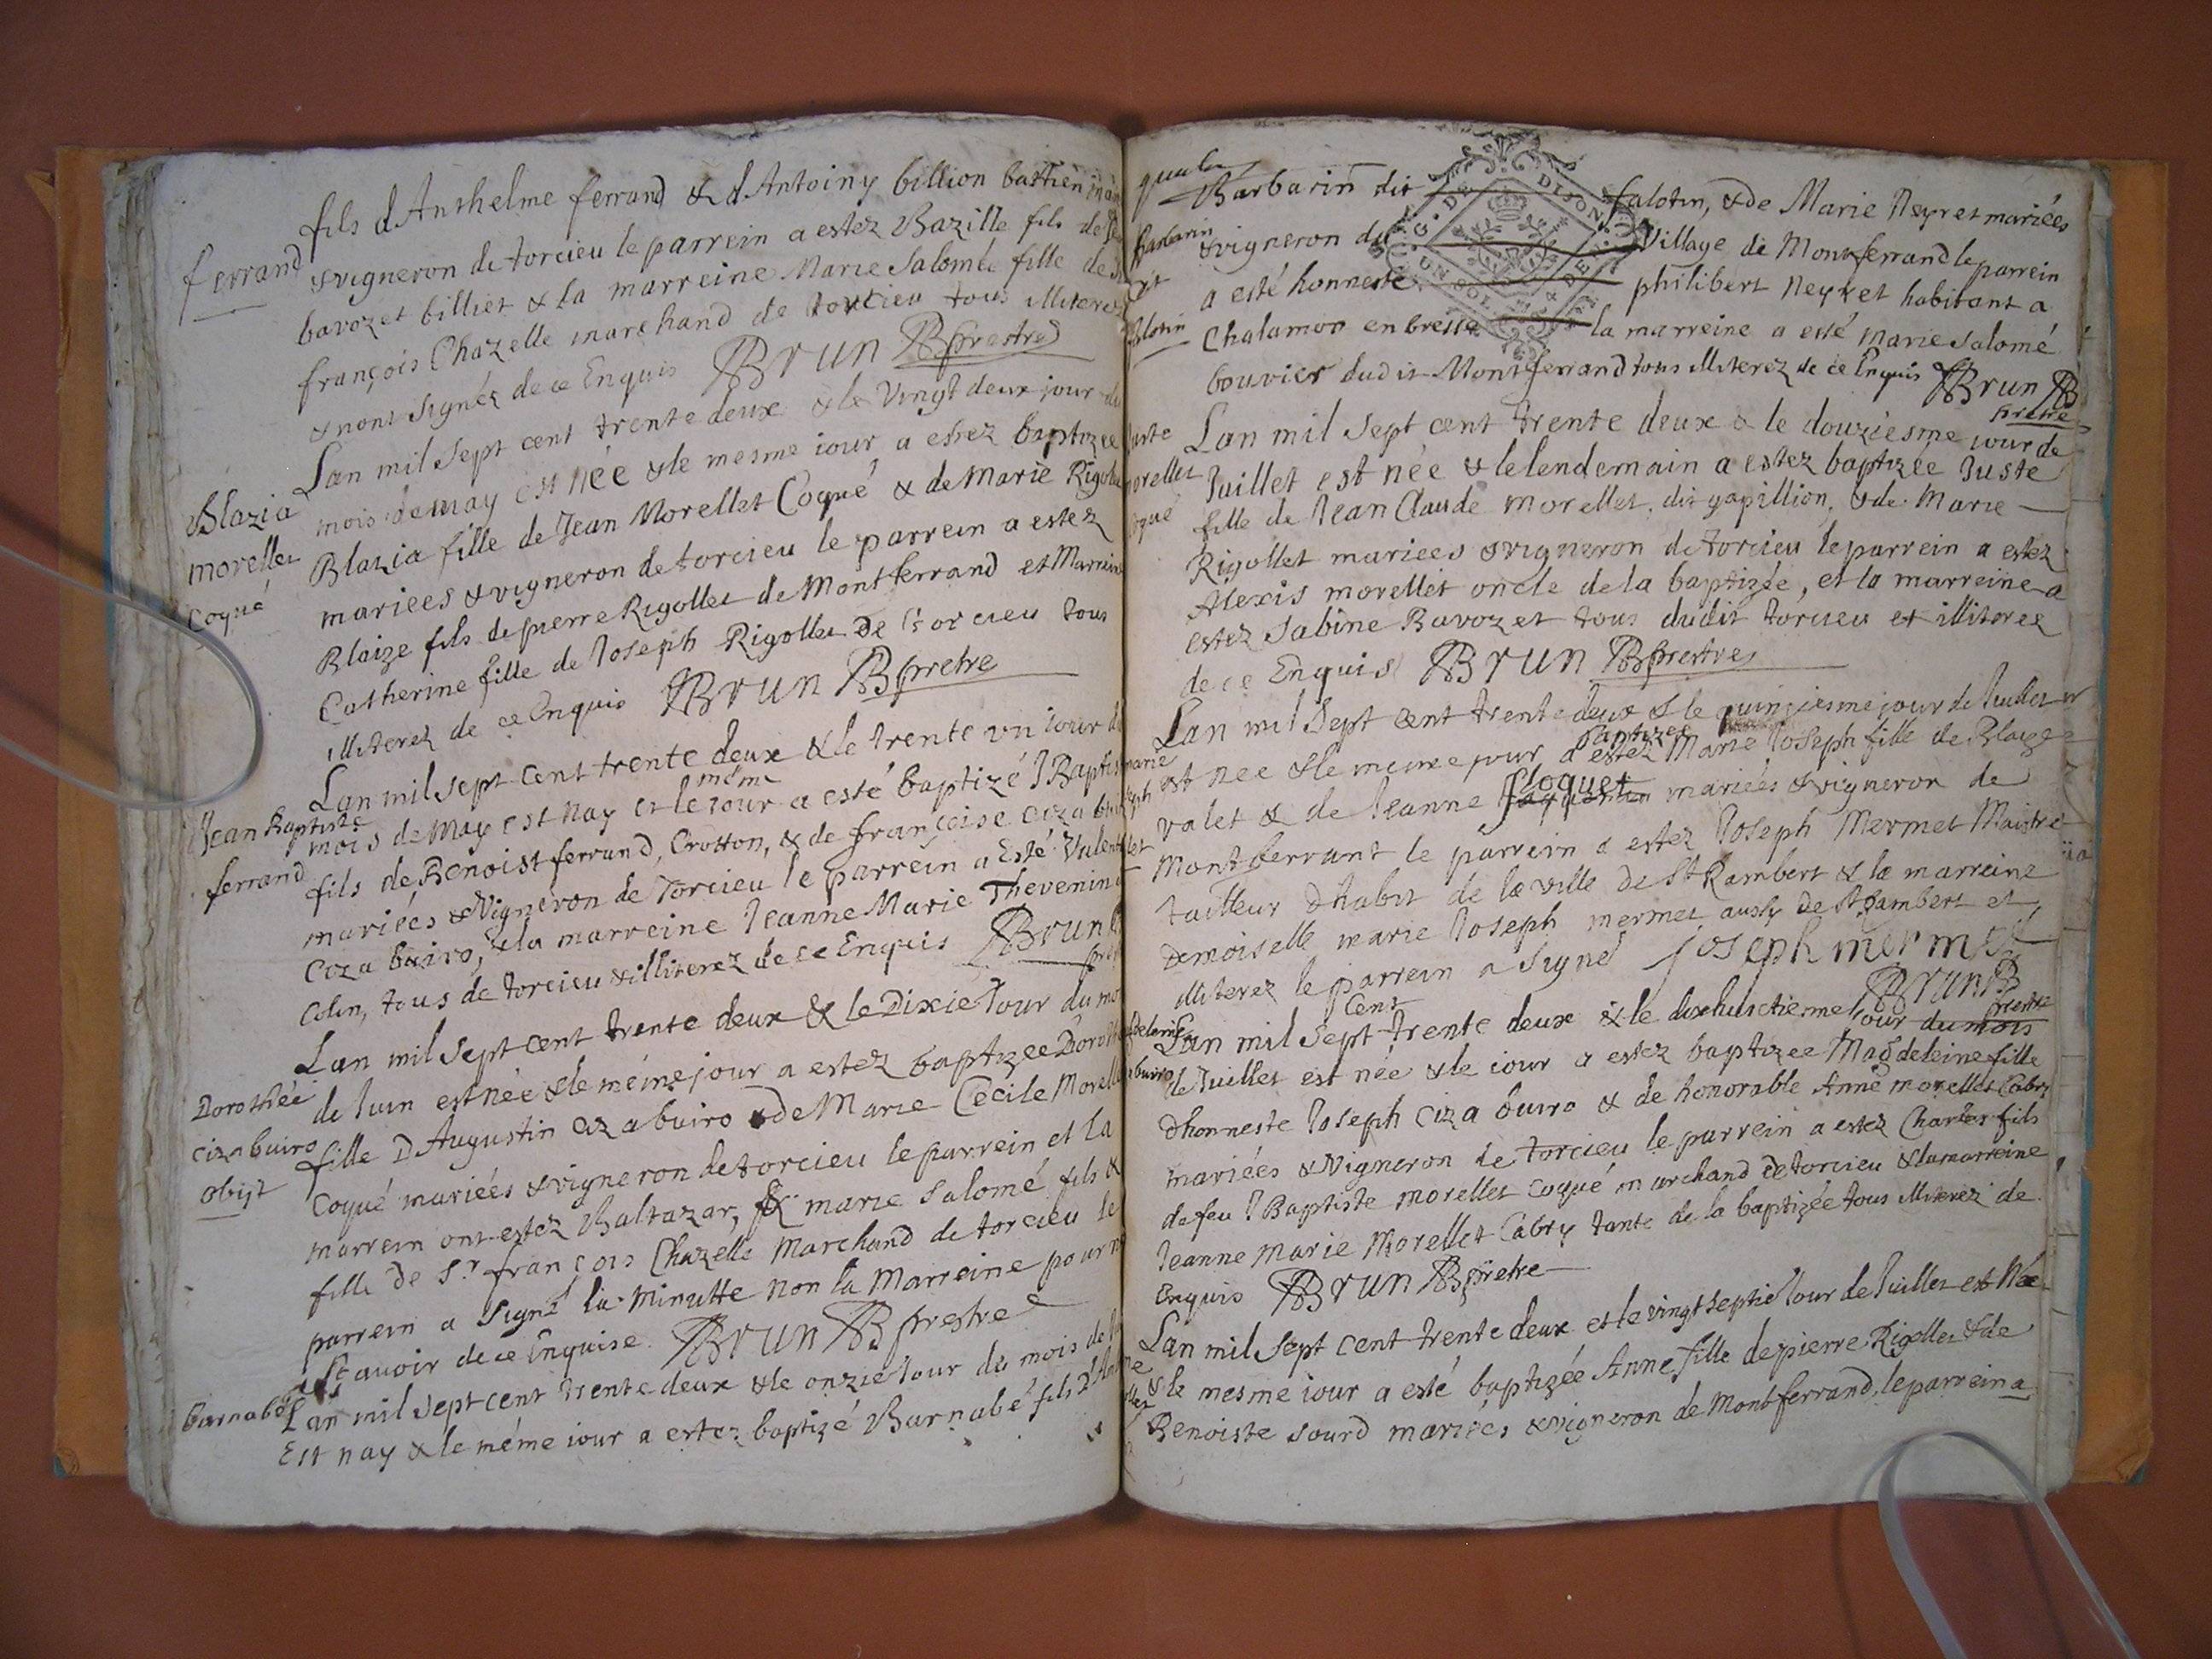 fils d'Anthelme ferrand & d'Antoiny billion bastien
ferrand
& vigneron de torcieu le parrein a estez Bazille fils de
bavozet billiet & la marreine Marie Salomé fille de
françois Chazelle marchand de torcieu tous illiterez
& nont signéz de ce Enquis Brun prestre
Lan mil sept cent trente deux & le Vingt deux jour du
Blazia
morellet
Coqué
mois de may est née & le mesme iour a estez baptizee
Blazia fille de Jean Morellet Coqué & de Marie
mariees & vigneron de torcieu le parrein a estez
Blaize fils de pierre Rigollet de Montferrand et
Catherine fille de Joseph Rigollet De torcieu tous
illiterez de ce Enquis Brun pretre
Lan mil sept cent trente deux & le trente vn iour
Jean Baptiste
ferrand
mois de May est nay et le même iour a esté baptizé
fils de Benoist ferrand, Crotton, & de françoise ciza
mariées & Vigneron de Torcieu le parrein a Esté
ciza buiro, & la marreine Jeanne Marie Thevenin
Colin, tous de torcieu & illiterez de ce Enquis Brun
Lan mil sept cent trente deux & le Dixie Jour du
Dorothée
ciza buiro
obijt
de Juin est née & le méme jour a estez baptizee
fille D'Augustin ciza buiro & de Marie Cecile
Coqué mariées & vigneron de torcieu le parrein et la
marrein ont estez Baltazar, & marie Salomé fils &
fille de Sr. françois Chazelle Marchand de torcieu le
parrein a Signé la Minutte Non la Marreine pour
Scavoir de ce Enquise. Brun prestre
barnabé
Lan mil sept cent trente deux & le onzie Jour du mois de
Est nay & le méme iour a estez baptizé Barnabé fils
Barbarin dit falotin, & de Marie Neyret mariées
barbarin
& vigneron du Village de Montferrand le parrein
a esté honneste philibert Neyret habitant a
Chalamon en bresse la marreine a esté Marie Salomé
bouvier dudit Montferrand tous illiterez de ce Enquis Brun
prestre
Lan mil sept cent trente deux & le douziésme iour de
Juillet est née & le lendemain a estez baptizée Juste
fille de Jean Claude Morellet, dit gapillion, & de Marie
Rigollet mariees & vigneron de torcieu le parrein a estez
Alexis morellet oncle de la baptizée, et la marreine a
estez Sabine Bavozet tous dudit torcieu et illiterez
de ce Enquis Brun prestre
Lan mil Sept cent trente deux & le quinziesme jour de Juillet
est née & le mesme jour a estez baptizee Marie Joseph fille de Blaize
valet & de Jeanne floquet mariés & vigneron de
Montferrant le parrein a estez Joseph Mermet Maistre
tailleur d'habit de la ville de St Rambert & la marreine
Demoiselle marie Joseph mermet aussy de St Rambert et
illiterez le parrein a Signé joseph mermet
Brun prestre
Lan mil sept Cent trente deux & le dixhuictieme Jour du mois
de Juillet est née & le iour a estez baptizee Magdeleine fille
d'honneste Joseph ciza buiro & de honorable Anne morellet Cabry
mariées & Vigneron de torcieu le parrein a estez Charles fils
de feu J Baptiste morellet coqué marchand de torcieu & la marreine
Jeanne Marie Morellet Cabry tante de la baptizée tous illiterez de
Enquis Brun pretre
Lan mil sept cent trente deux et le vingt septie Jour de Juillet est Née
& le mesme iour a esté baptizée Anne fille de pierre Rigollet & de
Benoiste sourd mariées & vigneron de Montferrand, le parrein a